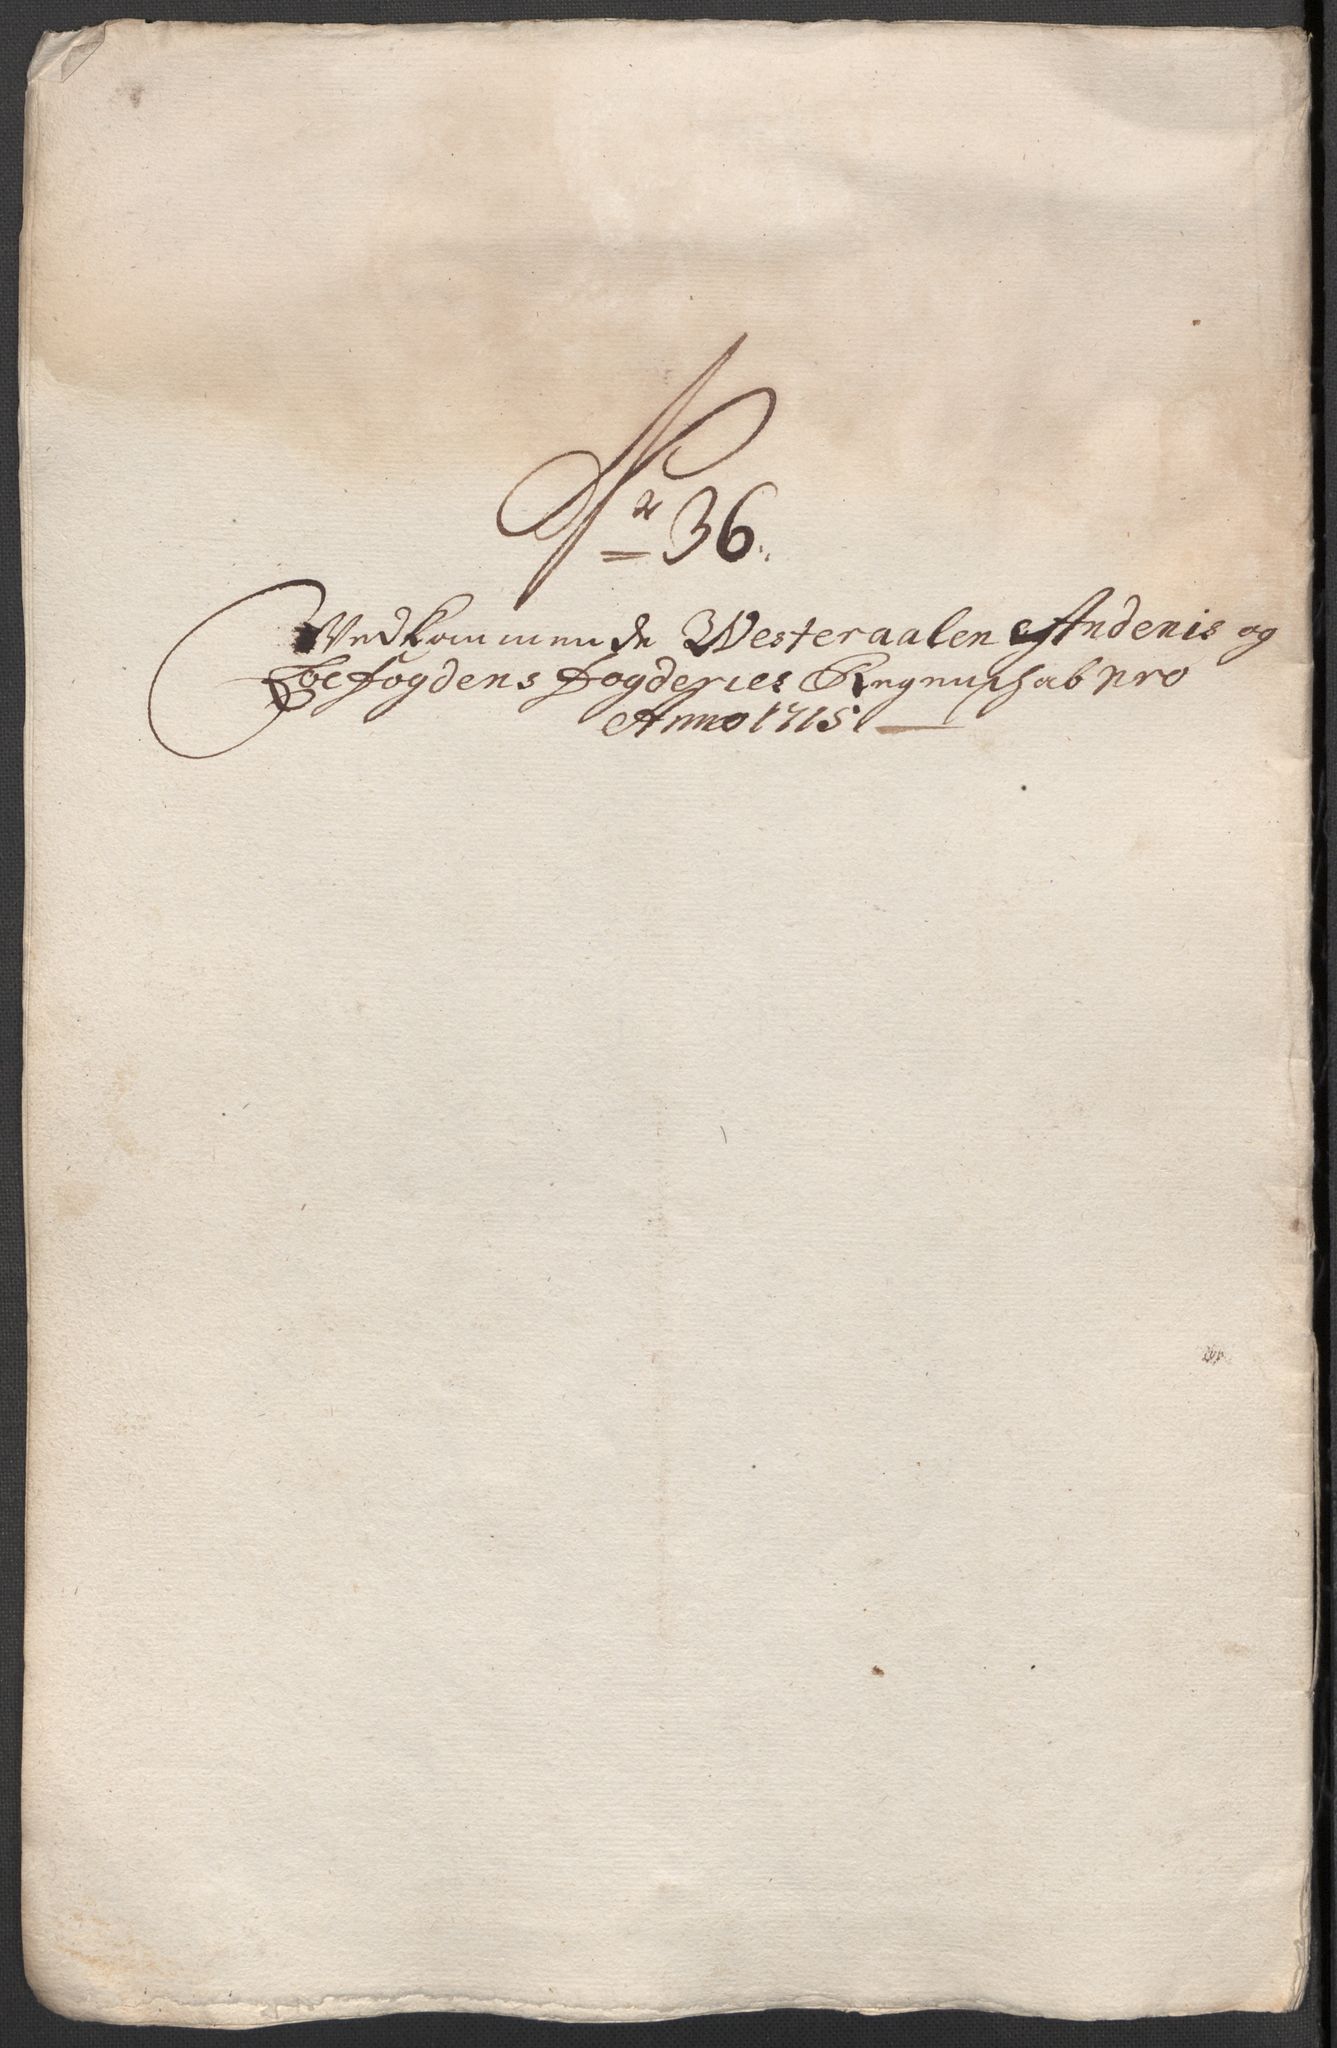 Nr 36.
Vedkommende Westeraalens Andenis og
Lofogdens Fogderies Regnenschab pro
Anno 1715